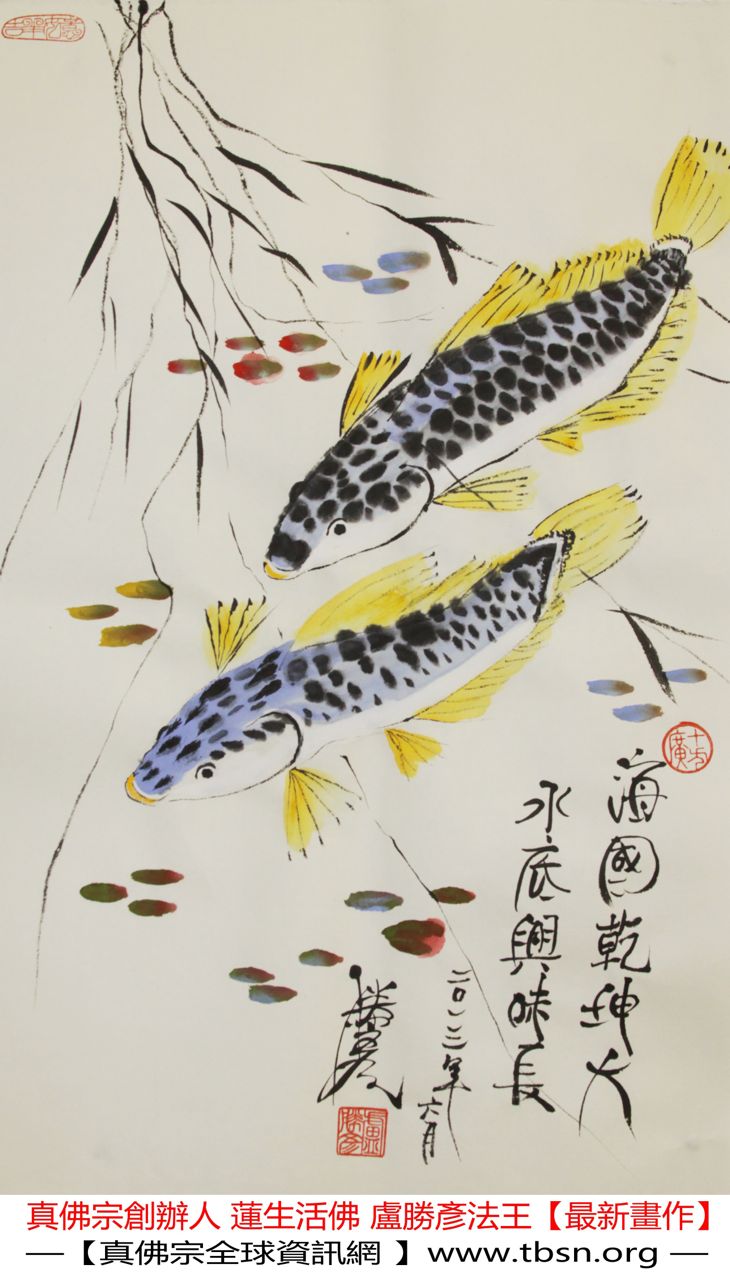 海國乾坤大
水底興味長
六月
勝彥
盧勝彥
真佛宗創辦人 蓮生活佛 盧勝彥法王【最新畫作】
—【真佛宗全球資訊網 】www.tbsn.org —